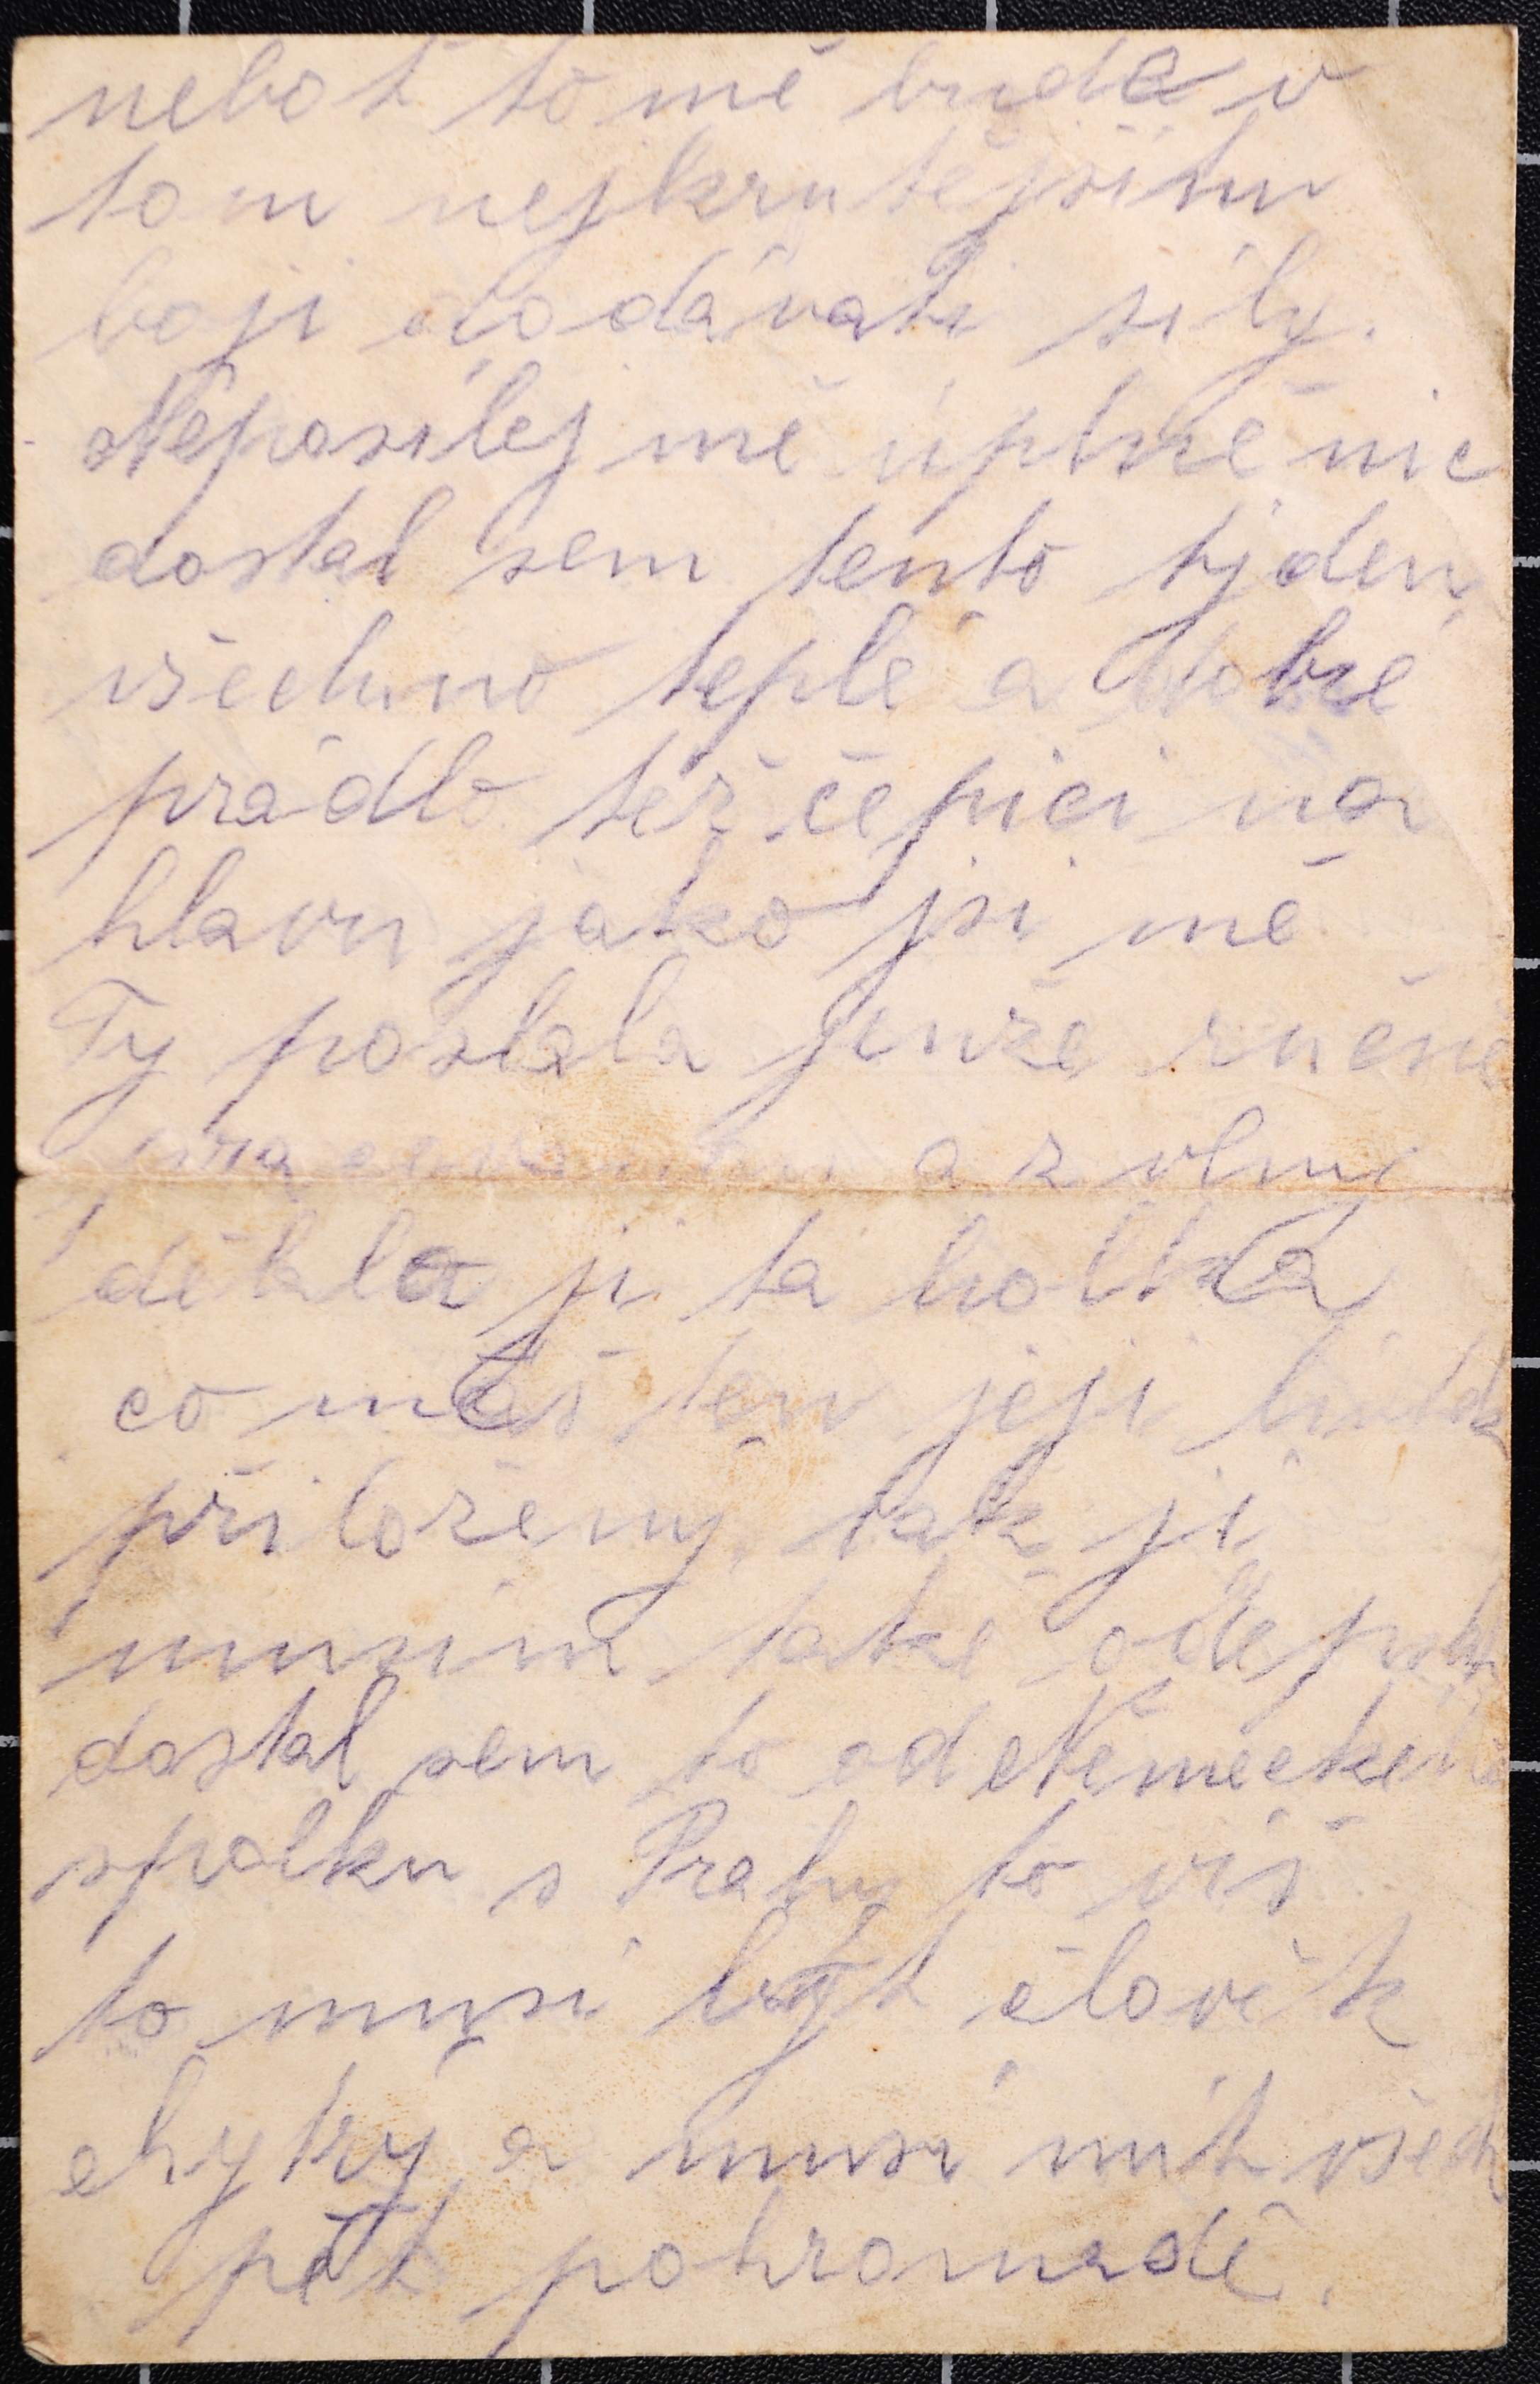 neboť to mě bude v
tom nejkrutějším
boji dodávati síly.
Neposílej mě úplně nic
dostal sem tento týden,
všechno teplé a dobré
prádlo též čepici na
hlavu jako jsi mě
Ty poslala jenže ručně
a z vlny
dělala ji ta holka
co máš ten její lístek
přiložený, tak ji
musím také odepsat
dostal sem to od Německého
spolku s Prahy to víš
to musí být člověk
chytrý a musí mít všech
pět pohromadě.